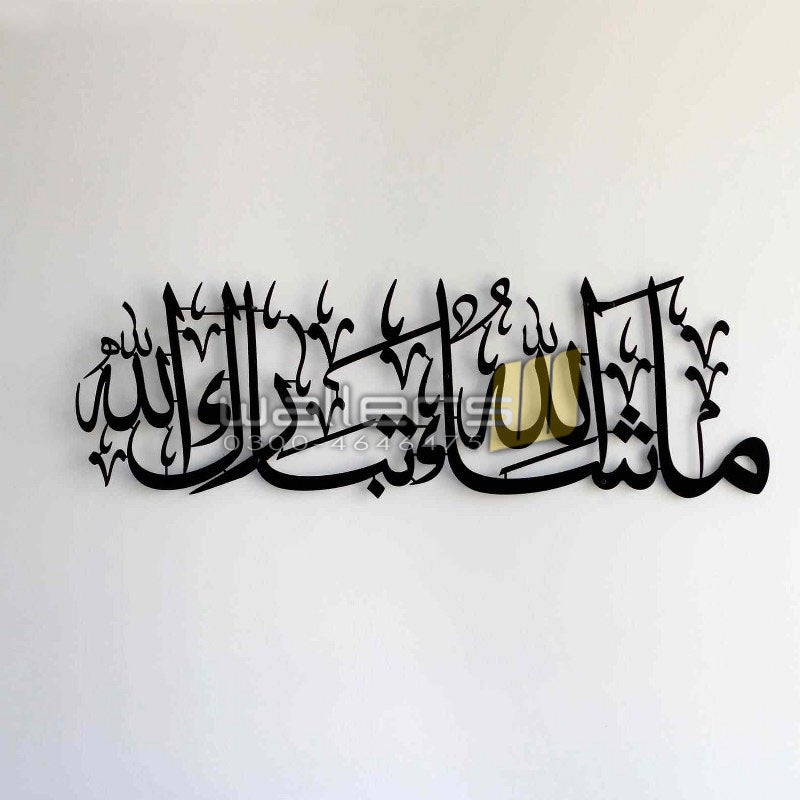 ما شاء الله تبارك الله
wallers
0300 4646475